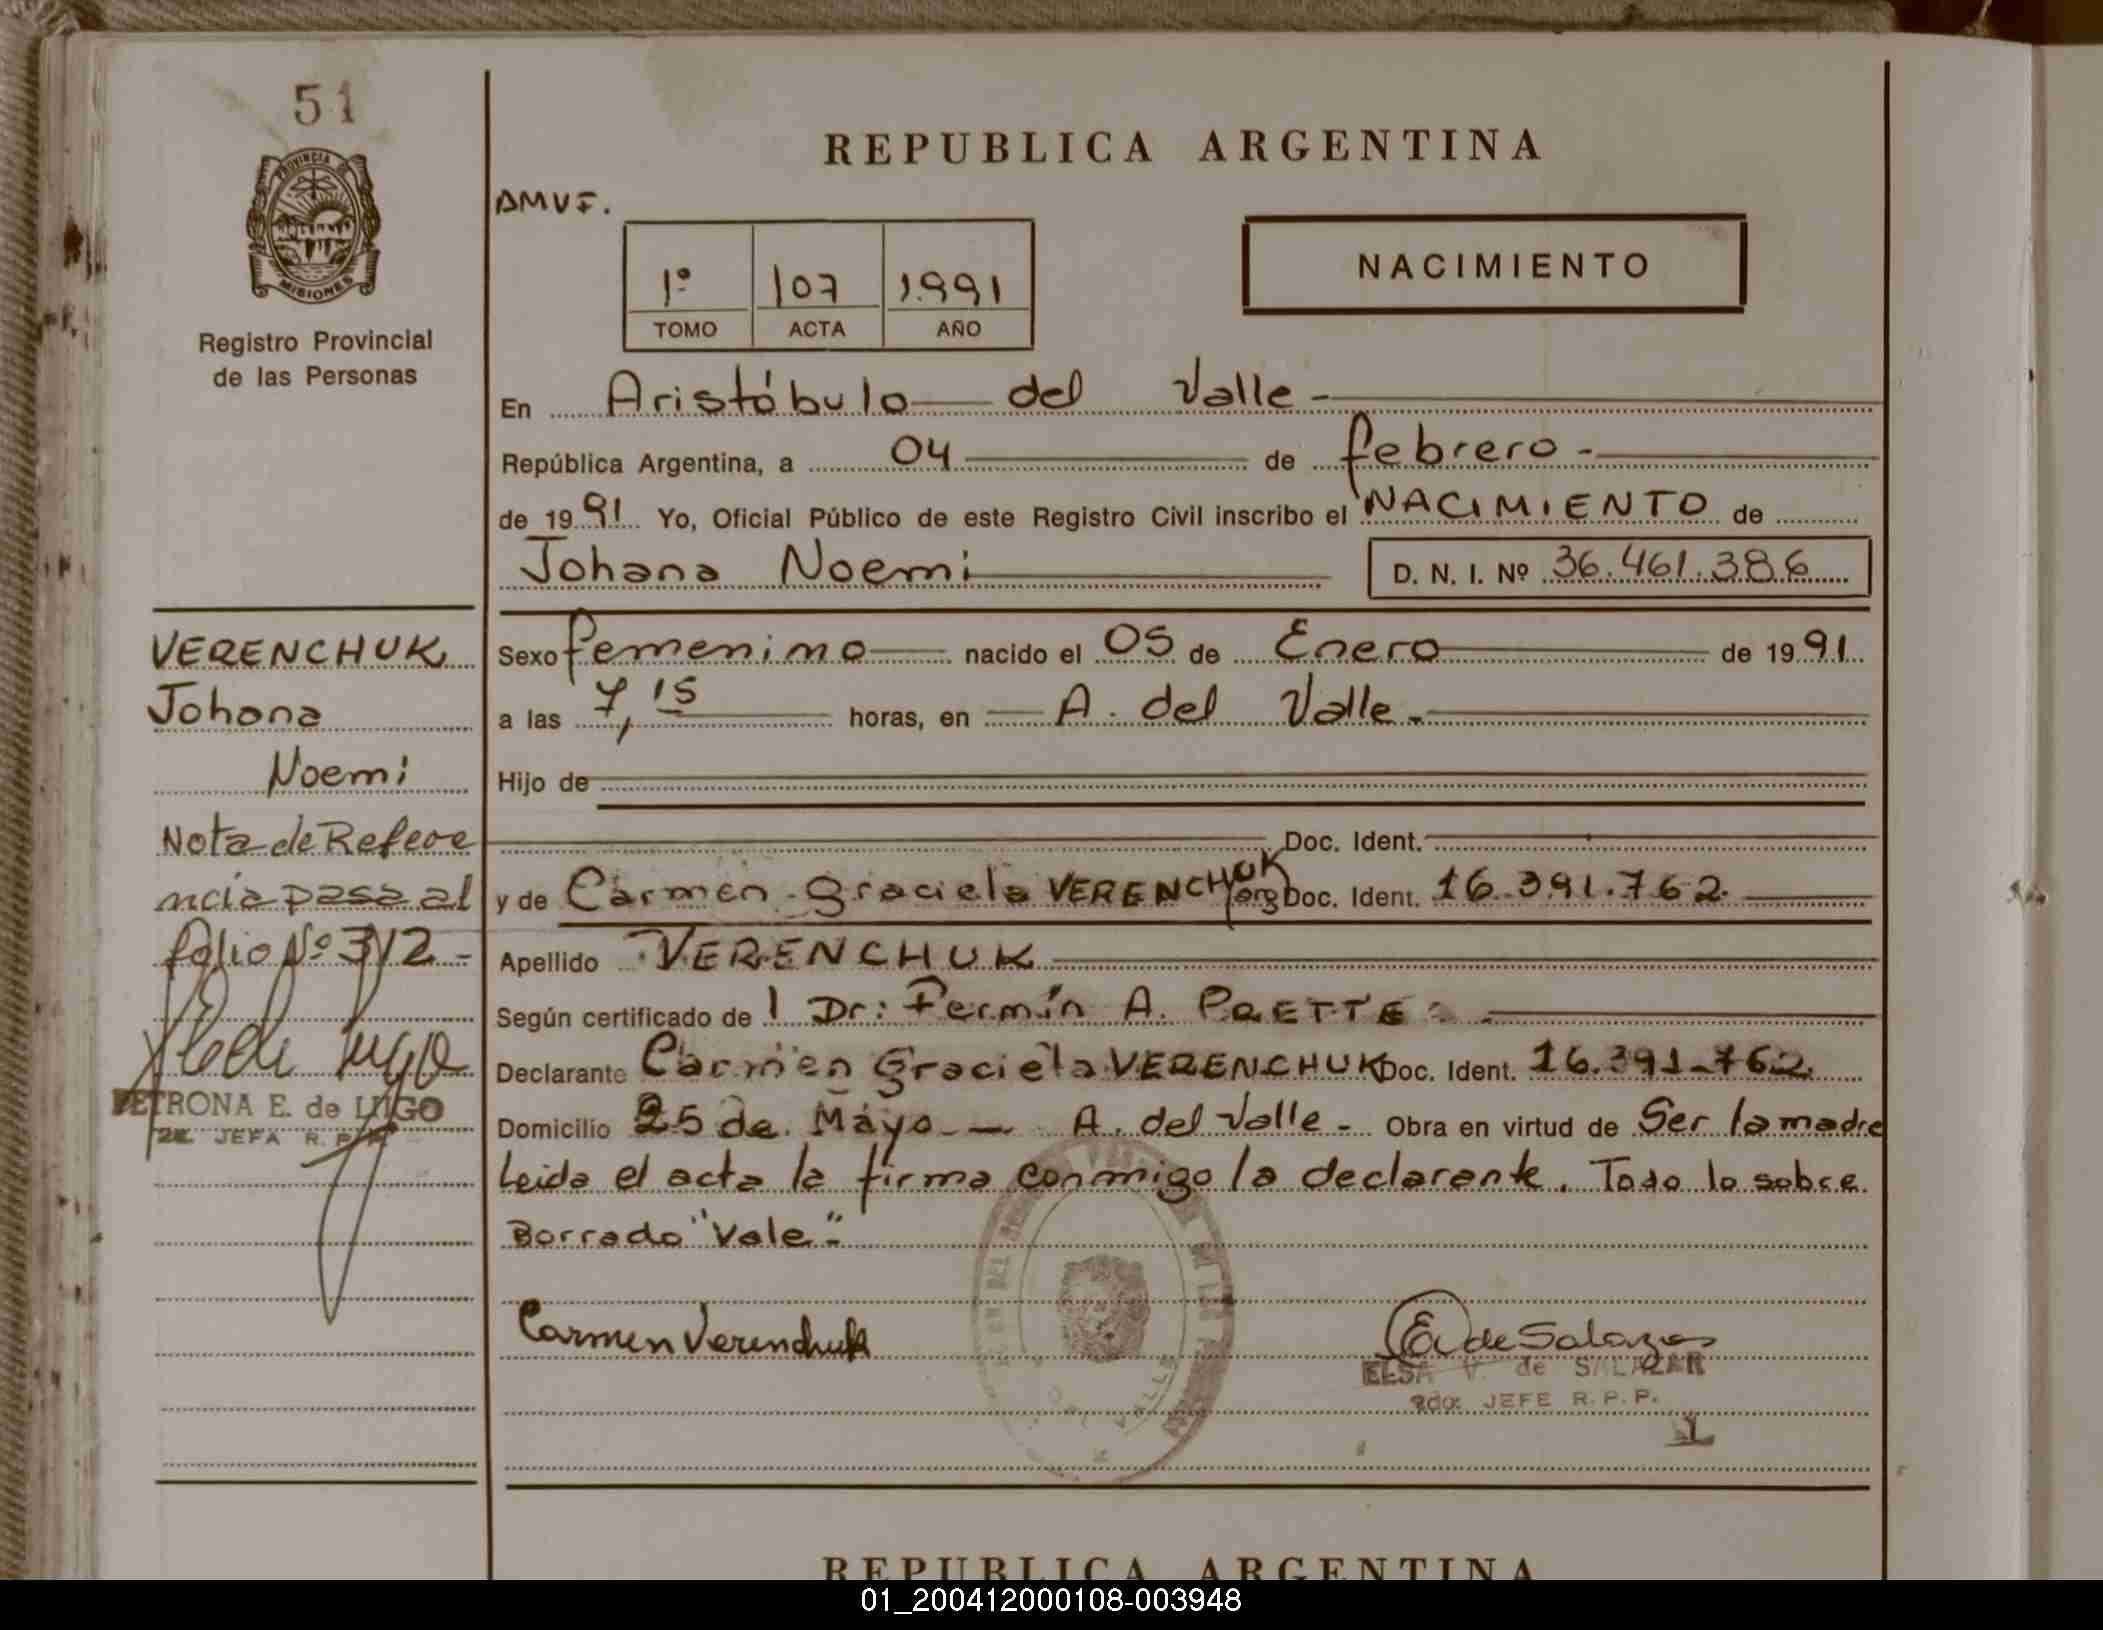 51
PROVINCIA DE
MISIONES
Registro Provincial
de las Personas
REPUBLICA ARGENTINA
AMVF.
1º 107 1991
TOMO ACTA AÑO
NACIMIENTO
En Aristóbulo del Valle -
República Argentina, a 04 de febrero -
de 1991 Yo, Oficial Público de este Registro Civil inscribo el NACIMIENTO de
Johana Noemi
D. N. I. Nº 36.461.386
VERENCHUK
Johana
Noemi
Nota de Refere
ncia pasa al
folio Nº 312 -
PETRONA E. de LUGO
JEFA R. P. P.
Sexo femenino nacido el 05 de Enero de 1991
a las 7,15 horas, en A. del Valle -
Hijo de
Doc. Ident.
y de Carmen Graciela VERENCHUK Doc. Ident. 16.391.762
Apellido VERENCHUK
Según certificado de l Dr: Fermín A. PRETTE
Declarante Carmen Graciela VERENCHUK Doc. Ident. 16.391.762
Domicilio 25 de Mayo - A. del Valle - Obra en virtud de Ser la madre
Leida el acta la firma conmigo la declarante. Todo lo sobre
Borrado "Vale"-
Carmen Verenchuk
E. de Salazar
ELSA V. de SALAZAR
2do. JEFE R. P. P.
REPUBLICA ARGENTINA
01_200412000108-003948